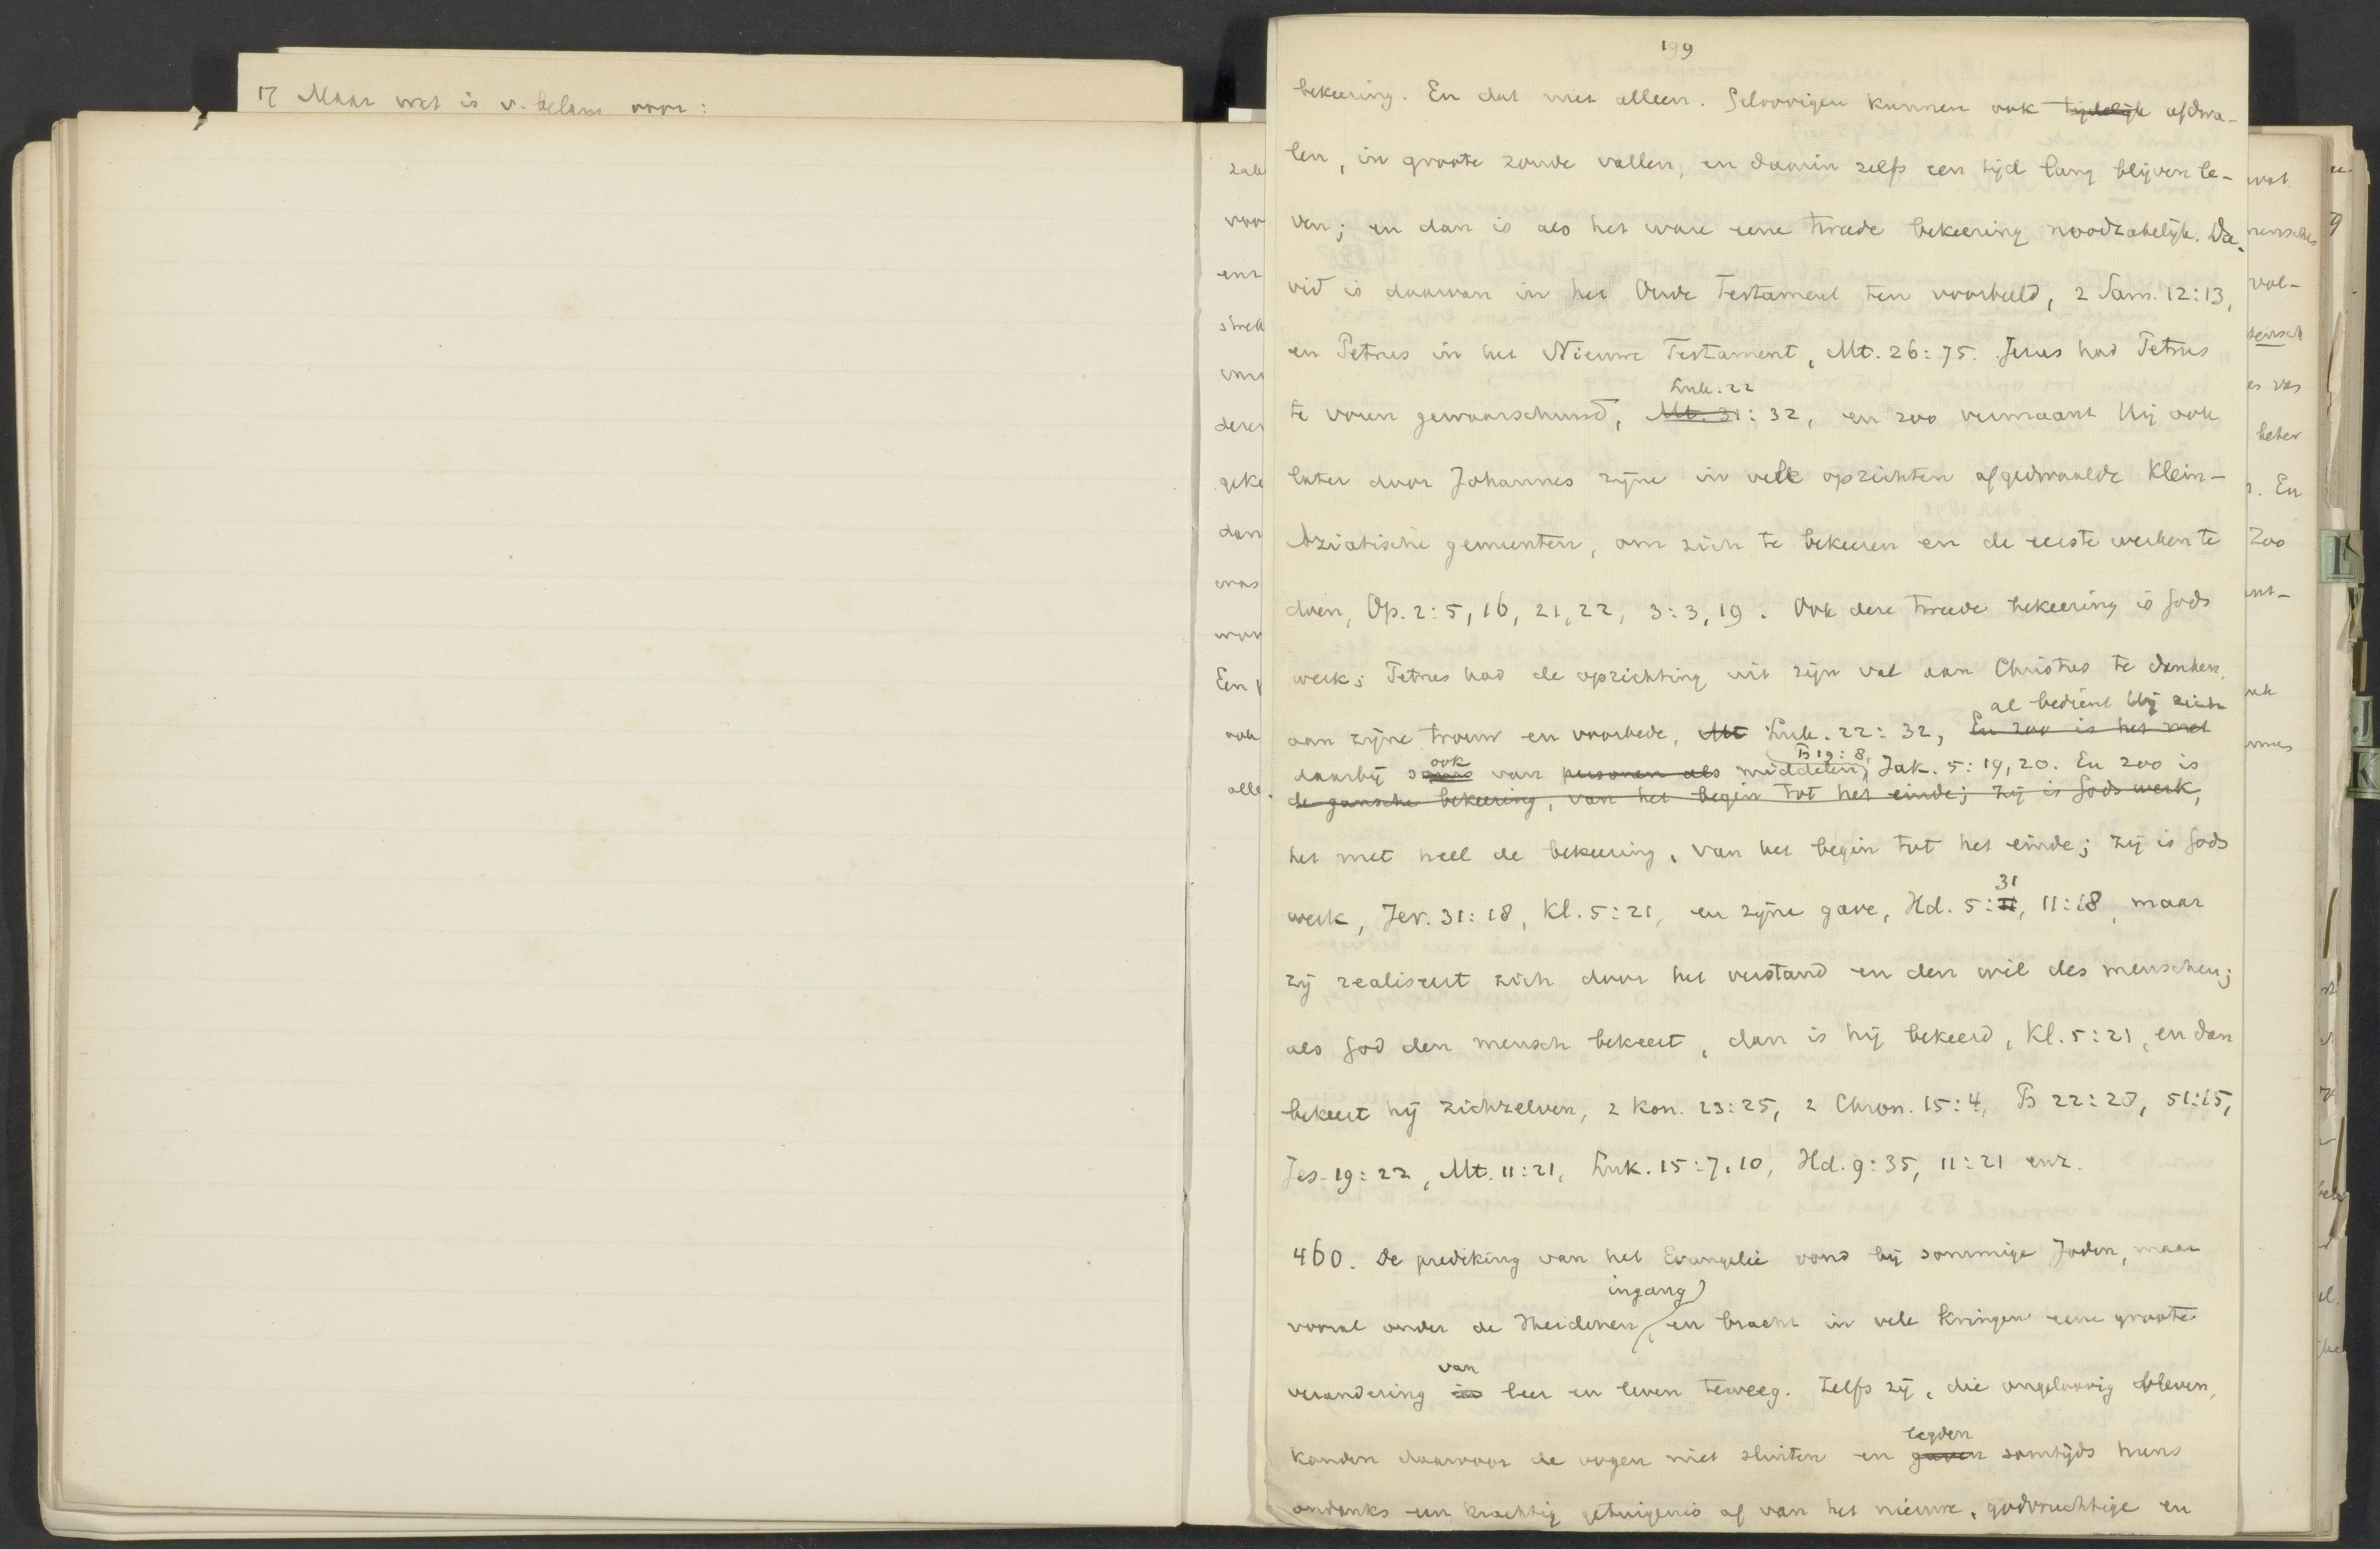 17 Maar wat is v. belang voor:
199
bekeering. En dat niet alleen. Geloovigen kunnen ook tijdelijk afdwa-
len, in groote zonde vallen, en daarin zelfs een tijd lang blijven le-
ven; en dan is als het ware eene tweede bekeering noodzakelijk. Da-
vid is daarvan in het Oude Testament ten voorbeeld, 2 Sam. 12:13,
en Petrus in het Nieuwe Testament, Mt. 26:75. Jezus had Petrus
Luk. 22
te voren gewaarschuwd, Mt. 31: 32, en zoo vermaant Hij ook
later door Johannes zijne in vele opzichten afgedwaalde Klein-
Aziatische gemeenten, om zich te bekeeren en de eerste werken te
doen, Op. 2:5, 16, 21, 22, 3:3, 19. Ook deze tweede bekeering is Gods
werk; Petrus had de oprichting uit zijn val aan Christus te danken,
al bedient Hij zich
aan zijne trouw en voorbede, Mt Luk. 22:32, En zoo is het met
ook Ps 19:8,
daarbij soms van personen als middelen, Jak. 5:19, 20. En zoo is
de gansche bekeering, van het begin tot het einde; zij is Gods werk,
het met heel de bekeering, van het begin tot het einde; zij is Gods
31
werk, Jer. 31:18, Kl. 5:21, en zijne gave, Hd. 5:11, 11:18, maar
zij realiseert zich door het verstand en den wil des menschen;
als God den mensch bekeert, dan is hij bekeerd, Kl. 5:21, en dan
bekeert hij zichzelven, 2 Kon. 23:25, 2 Chron. 15:4, Ps 22:28, 51:15,
Jes. 19:22, Mt. 11:21, Luk. 15:7, 10, Hd. 9:35, 11:21 enz.
460. De prediking van het Evangelie vond bij sommige Joden, maar
ingang
vooral onder de Heidenen, en bracht in vele kringen eene groote
van
verandering in leer en leven teweeg. Zelfs zij, die ongeloovig bleven,
legden
konden daarvoor de oogen niet sluiten en gaven somtijds huns
ondanks een krachtig getuigenis af van het nieuwe, godvruchtige en